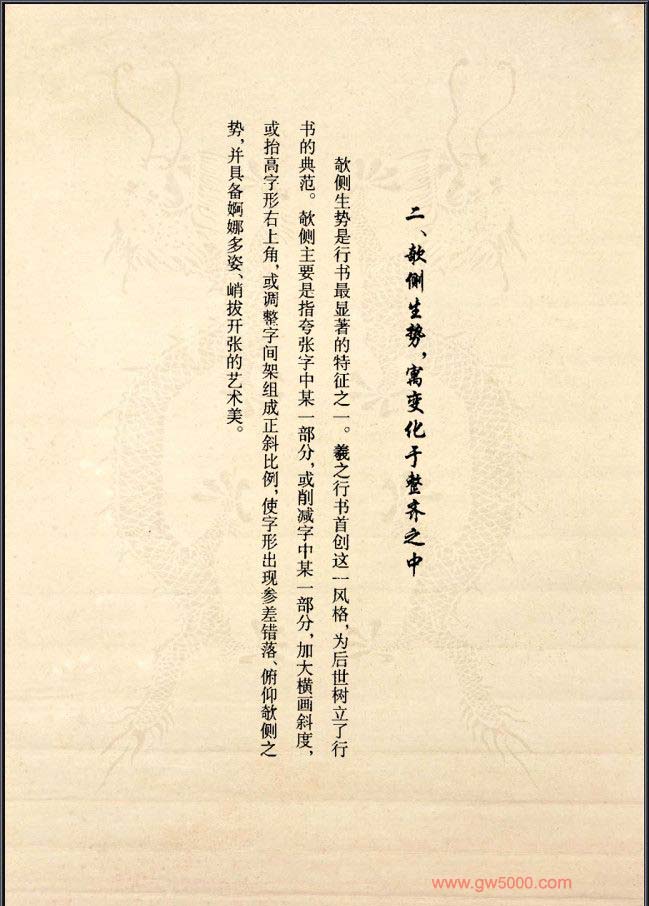 二、欹侧生势，寓变化于整齐之中
欹侧生势是行书最显著的特征之一。羲之行书首创这一风格，为后世树立了行
书的典范。欹侧主要是指夸张字中某一部分，或削减字中某一部分，加大横画斜度，
或抬高字形右上角，或调整字间架组成正斜比例，使字形出现参差错落、俯仰欹侧之
势，并具备婀娜多姿、峭拔开张的艺术美。
www.gw5000.com